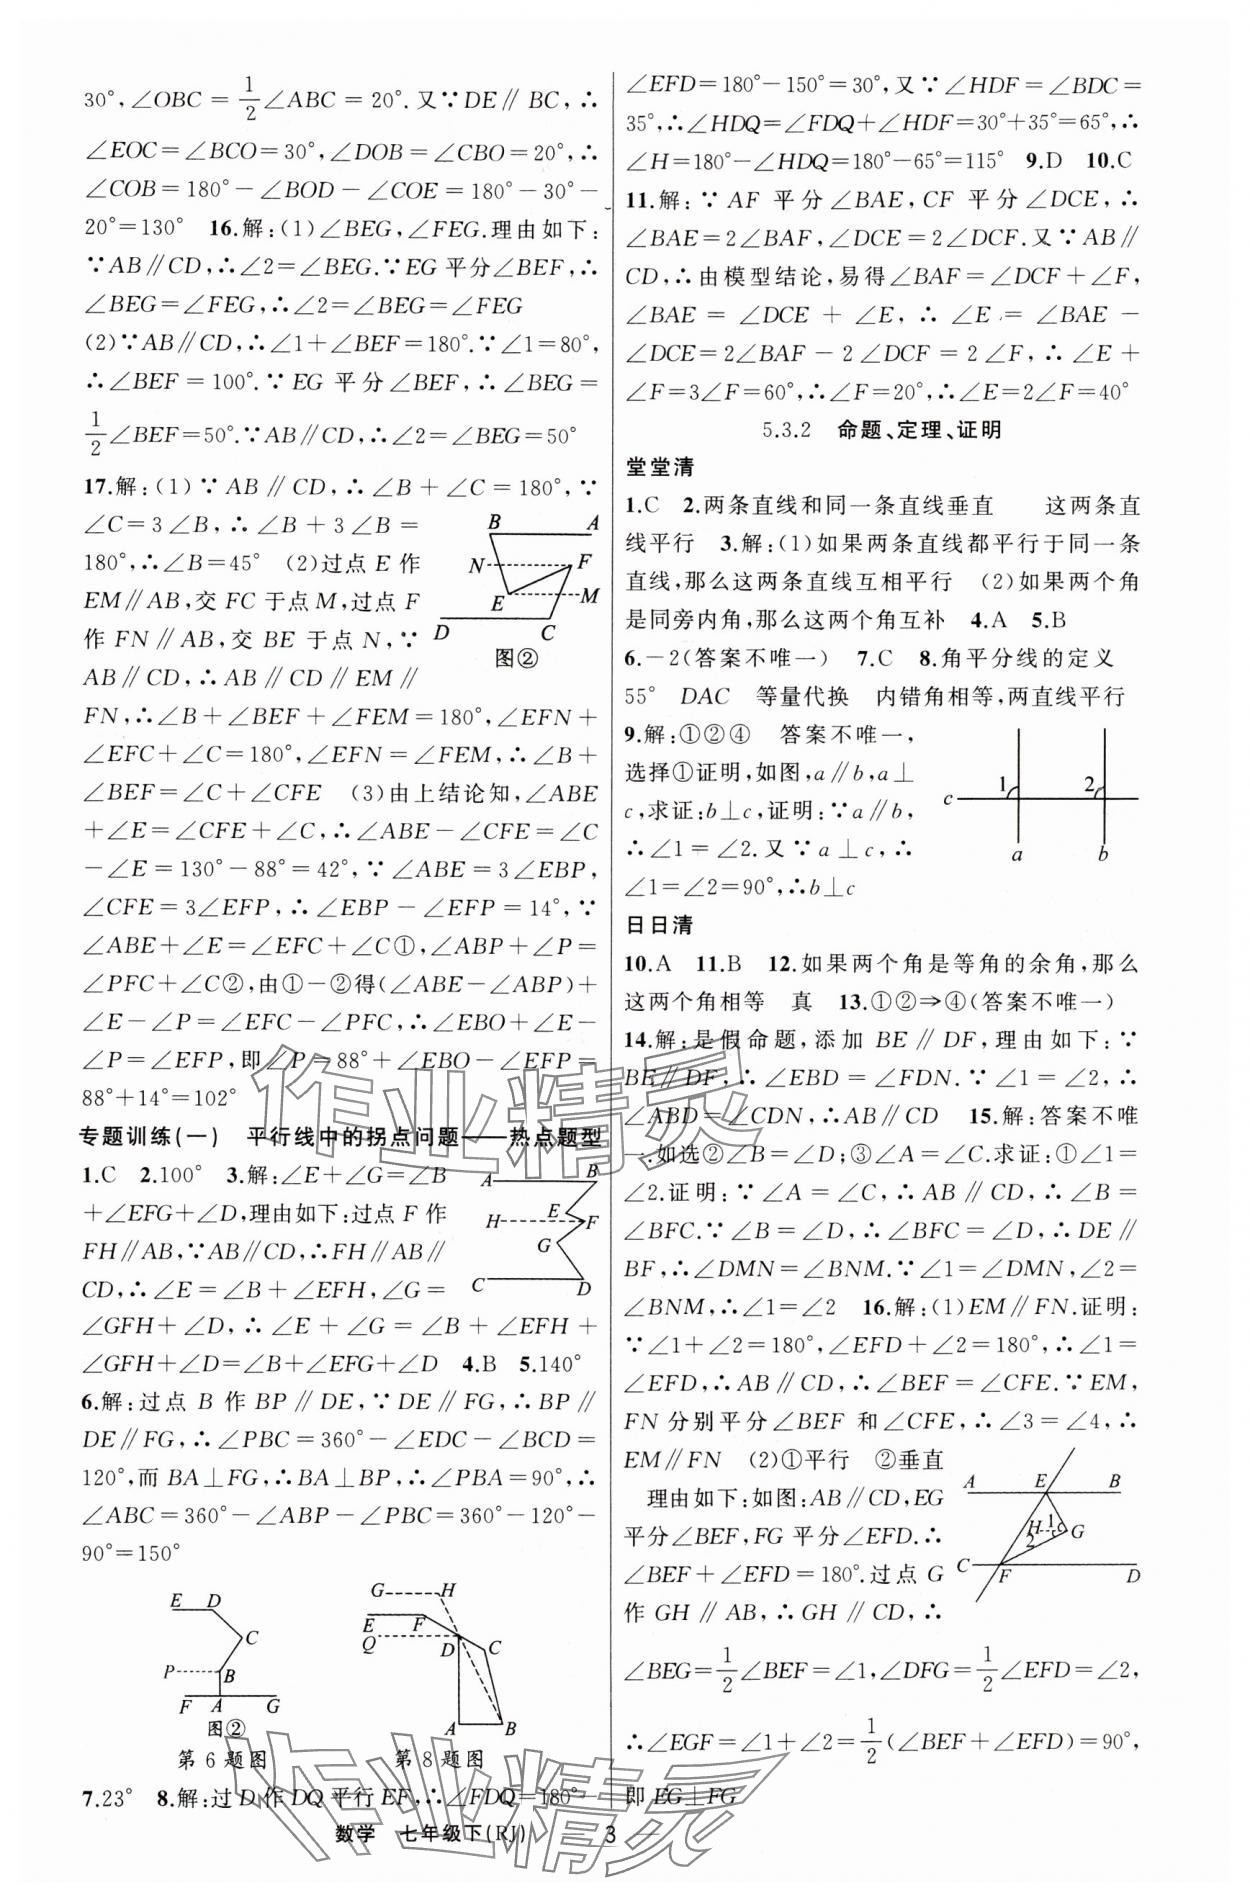 30°,∠OBC=1/2∠ABC=20°.又∵DE∥BC,∴
∠EOC=∠BCO=30°,∠DOB=∠CBO=20°,∴
∠COB=180°-∠BOD-∠COE=180°-30°-
20°=130° 16.解:(1)∠BEG,∠FEG.理由如下:
∵AB∥CD,∴∠2=∠BEG.∵EG平分∠BEF,∴
∠BEG=∠FEG,∴∠2=∠BEG=∠FEG
(2)∵AB∥CD,∴∠1+∠BEF=180°.∵∠1=80°,
∴∠BEF=100°.∵EG平分∠BEF,∴∠BEG=
1/2∠BEF=50°.∵AB∥CD,∴∠2=∠BEG=50°
17.解:(1)∵AB∥CD,∴∠B+∠C=180°,∵
∠C=3∠B,∴∠B+3∠B=
180°,∴∠B=45° (2)过点E作
EM∥AB,交FC于点M,过点F
作FN∥AB,交BE于点N,∵
AB∥CD,∴AB∥CD∥EM∥
B A
N F
E M
D C
图②
FN,∴∠B+∠BEF+∠FEM=180°,∠EFN+
∠EFC+∠C=180°,∠EFN=∠FEM,∴∠B+
∠BEF=∠C+∠CFE (3)由上结论知,∠ABE
+∠E=∠CFE+∠C,∴∠ABE-∠CFE=∠C
-∠E=130°-88°=42°,∵∠ABE=3∠EBP,
∠CFE=3∠EFP,∴∠EBP-∠EFP=14°,∵
∠ABE+∠E=∠EFC+∠C①,∠ABP+∠P=
∠PFC+∠C②,由①-②得(∠ABE-∠ABP)+
∠E-∠P=∠EFC-∠PFC,∴∠EBO+∠E-
∠P=∠EFP,即∠P=88°+∠EBO-∠EFP=
88°+14°=102°
专题训练(一) 平行线中的拐点问题——热点题型
1.C 2.100° 3.解:∠E+∠G=∠B
+∠EFG+∠D,理由如下:过点F作
FH∥AB,∵AB∥CD,∴FH∥AB∥
CD,∴∠E=∠B+∠EFH,∠G=
A B
E
H F
G
C D
∠GFH+∠D,∴∠E+∠G=∠B+∠EFH+
∠GFH+∠D=∠B+∠EFG+∠D 4.B 5.140°
6.解:过点B作BP∥DE,∵DE∥FG,∴BP∥
DE∥FG,∴∠PBC=360°-∠EDC-∠BCD=
120°,而BA⊥FG,∴BA⊥BP,∴∠PBA=90°,∴
∠ABC=360°-∠ABP-∠PBC=360°-120°-
90°=150°
E D
C
P B
F A G
图②
第6题图
G H
E F
Q D C
A B
第8题图
7.23° 8.解:过D作DQ平行EF,∴∠FDQ=180°-
∠EFD=180°-150°=30°,又∵∠HDF=∠BDC=
35°,∴∠HDQ=∠FDQ+∠HDF=30°+35°=65°,∴
∠H=180°-∠HDQ=180°-65°=115° 9.D 10.C
11.解:∵AF平分∠BAE,CF平分∠DCE,∴
∠BAE=2∠BAF,∠DCE=2∠DCF.又∵AB∥
CD,∴由模型结论,易得∠BAF=∠DCF+∠F,
∠BAE=∠DCE+∠E,∴∠E=∠BAE-
∠DCE=2∠BAF-2∠DCF=2∠F,∴∠E+
∠F=3∠F=60°,∴∠F=20°,∴∠E=2∠F=40°
5.3.2 命题、定理、证明
堂堂清
1.C 2.两条直线和同一条直线垂直 这两条直
线平行 3.解:(1)如果两条直线都平行于同一条
直线,那么这两条直线互相平行 (2)如果两个角
是同旁内角,那么这两个角互补 4.A 5.B
6.-2(答案不唯一) 7.C 8.角平分线的定义
55° DAC 等量代换 内错角相等,两直线平行
9.解:①②④ 答案不唯一,
选择①证明,如图,a∥b,a⊥
c,求证:b⊥c,证明:∵a∥b,
∴∠1=∠2.又∵a⊥c,∴
∠1=∠2=90°,∴b⊥c
1 2
c
a b
日日清
10.A 11.B 12.如果两个角是等角的余角,那么
这两个角相等 真 13.①②⇒④(答案不唯一)
14.解:是假命题,添加BE∥DF,理由如下:∵
BE∥DF,∴∠EBD=∠FDN.∵∠1=∠2,∴
∠ABD=∠CDN,∴AB∥CD 15.解:答案不唯
一.如选②∠B=∠D;③∠A=∠C.求证:①∠1=
∠2.证明:∵∠A=∠C,∴AB∥CD,∴∠B=
∠BFC.∵∠B=∠D,∴∠BFC=∠D,∴DE∥
BF,∴∠DMN=∠BNM.∵∠1=∠DMN,∠2=
∠BNM,∴∠1=∠2 16.解:(1)EM∥FN.证明:
∵∠1+∠2=180°,∠EFD+∠2=180°,∴∠1=
∠EFD,∴AB∥CD,∴∠BEF=∠CFE.∵EM,
FN分别平分∠BEF和∠CFE,∴∠3=∠4,∴
EM∥FN (2)①平行 ②垂直
理由如下:如图:AB∥CD,EG
平分∠BEF,FG平分∠EFD.∴
∠BEF+∠EFD=180°.过点G
作GH∥AB,∴GH∥CD,∴
A E B
H 1 G
2
C F D
∠BEG=1/2∠BEF=∠1,∠DFG=1/2∠EFD=∠2,
∴∠EGF=∠1+∠2=1/2(∠BEF+∠EFD)=90°,
即EG⊥FG
数学 七年级下(RJ) 3
作业精灵
作业精灵